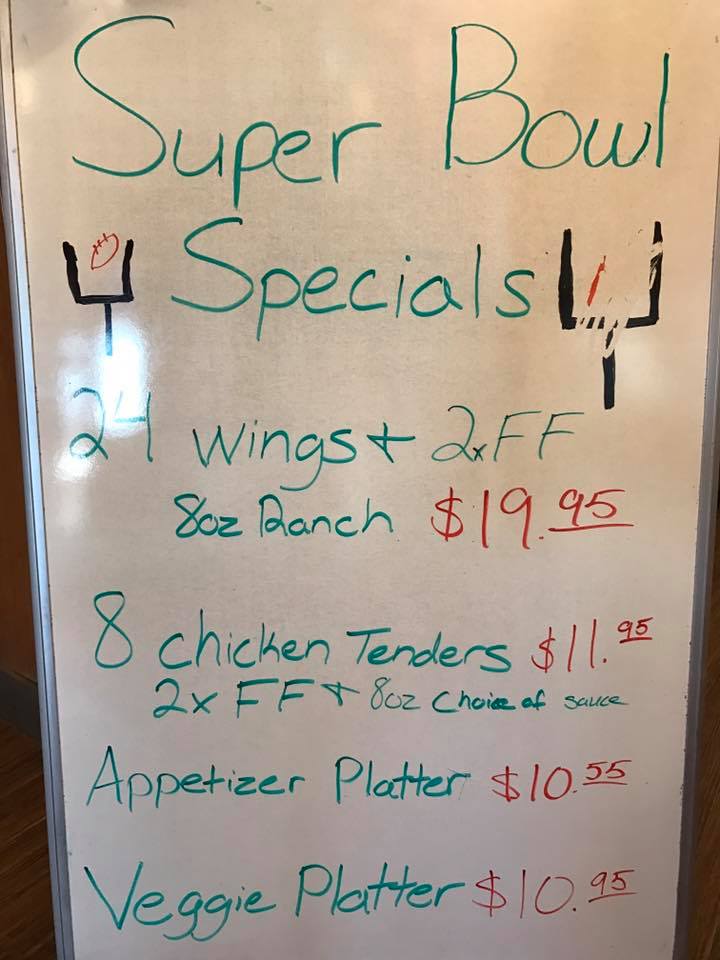 Super Bowl
Specials
24 wings + 2xFF
8oz Ranch $19.95
8 chicken Tenders $11.95
2x FF + 8oz choice of sauce
Appetizer Platter $10.55
Veggie Platter $10.95